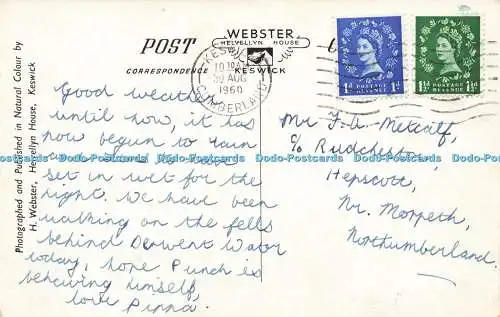 POST
WEBSTER
HELVELLYN HOUSE
KESWICK
CORRESPONDENCE
KESWICK
10
AUG
1960
CUMBERLAND
POSTAGE
REVENUE
1d 1d
POSTAGE
REVENUE
1½d 1½d
Photographed and Published in Natural Colour by
H. Webster, Helvellyn House, Keswick
Good weather
until now, it has
now begun to rain
and
set in wet for the
night. We have been
walking on the fells
behind Derwent Water
today, hope Punch is
behaving himself,
love Pinna.
Mr F. A. Metcalf,
c/o Rudchester,
Hepscott,
Nr. Morpeth,
Northumberland.
Dodo-Postcards Dodo-Postcards Dodo-Postcards Dodo-Postcards Dodo-Postcards Dodo-Postcards Dodo-Postcards